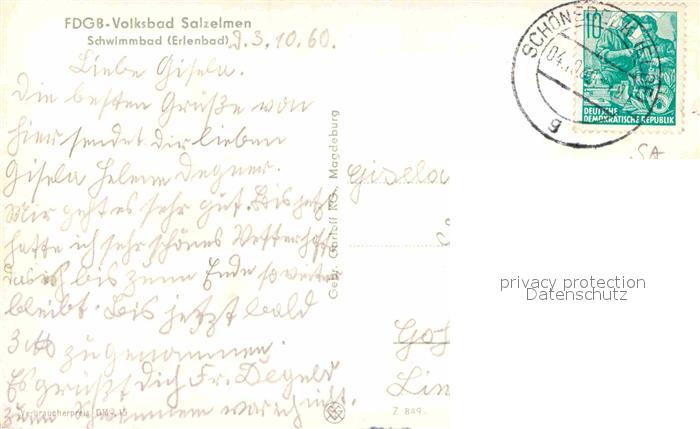 FDGB-Volksbad Salzelmen
Schwimmbad (Erlenbad)
d. 3. 10. 60.
Liebe Gisela.
Die besten Grüße von
hier sendet dir lieben
Gisela Helene Degner.
Mir geht es sehr gut. Bis jetzt
hatte ich sehr schönes Wetter hoff
das es bis zum Ende so weiter
bleibt. Bis jetzt bald
3 zugenommen.
Es grüßt dich Fr.
zum Schwimmen war ich nicht.
Verbraucherpreis DM
Gebr. Garloff KG., Magdeburg
Z 849
SCHÖNEBECK (ELBE)
04.10.60
g
10
DEUTSCHE
DEMOKRATISCHE REPUBLIK
SA
Gisela
Goh
Lin
privacy protection
Datenschutz